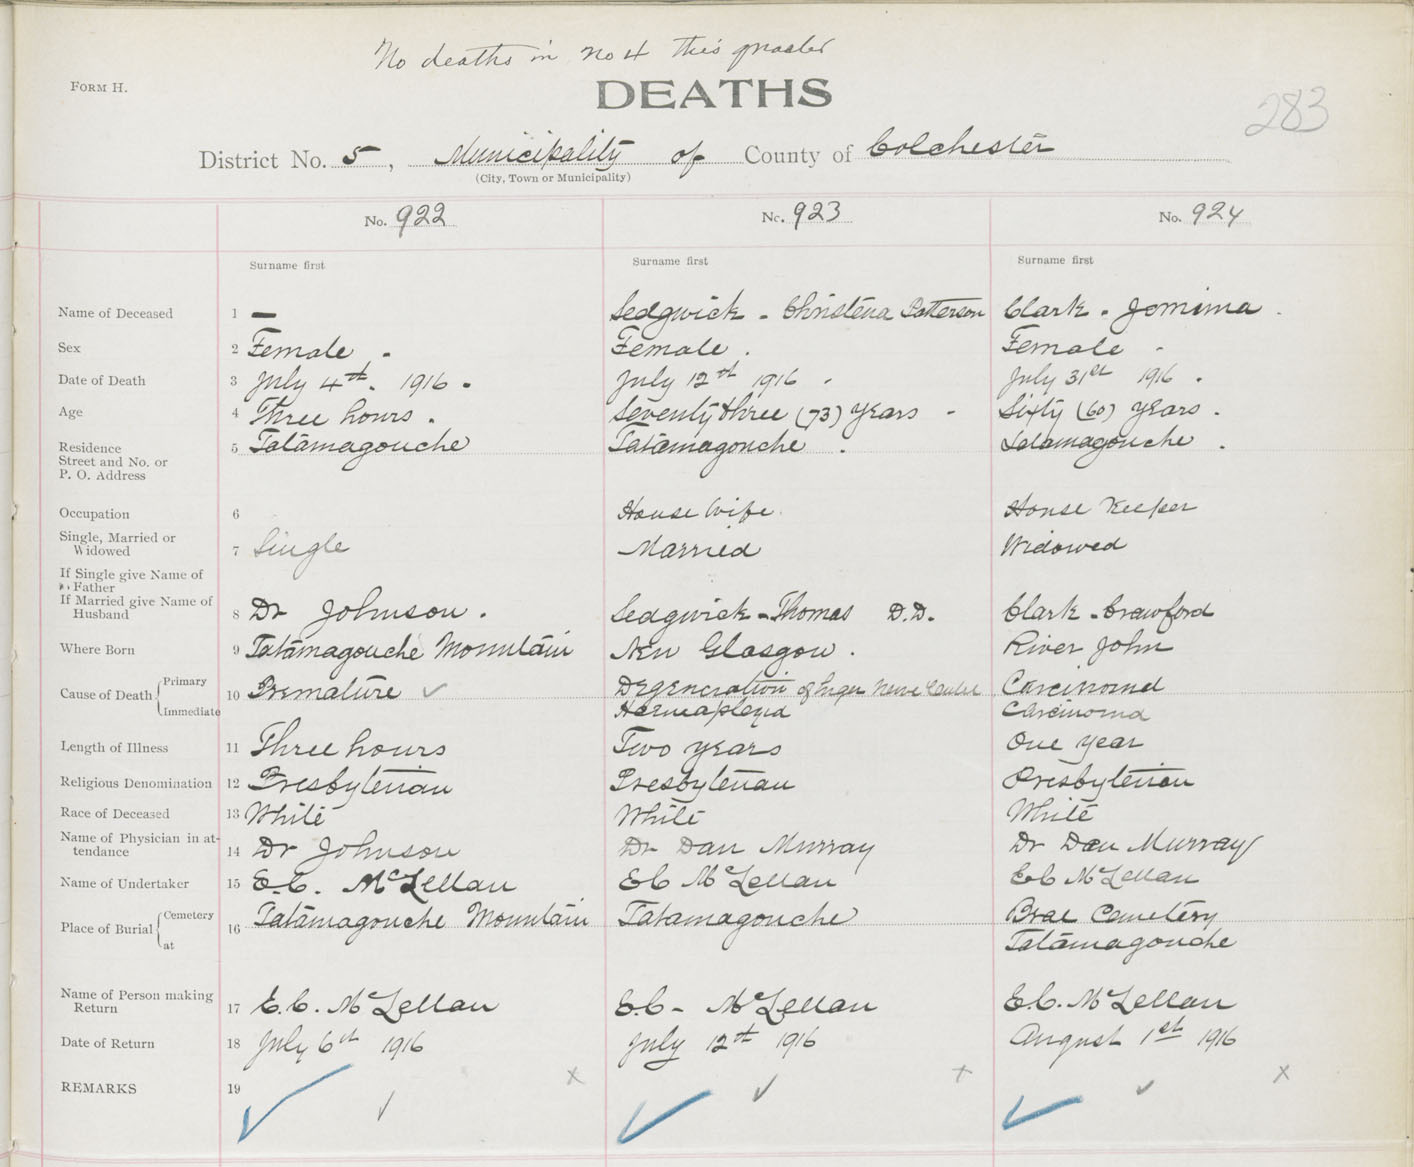 No deaths in no 4 this quarter
FORM H.
DEATHS
283
District No. 5, Municipality of County of Colchester
(City, Town or Municipality)
No. 922 No. 923 No. 924
Surname first Surname first Surname first
Name of Deceased 1 — Sedgwick - Christena Patterson Clark - Jemima.
Sex 2 Female. Female. Female -
Date of Death 3 July 4th. 1916. July 12th 1916. July 31st 1916.
Age 4 Three hours. Seventy three (73) years - Sixty (60) years.
Residence 5 Tatamagouche Tatamagouche. Tatamagouche.
Street and No. or
P. O. Address
Occupation 6 House Wife. House Keeper
Single, Married or
Widowed 7 Single Married Widowed
If Single give Name of
Father
If Married give Name of
Husband 8 Dr Johnson. Sedgwick - Thomas D.D. Clark - Crawford
Where Born 9 Tatamagouche Mountain New Glasgow. River John
Cause of Death Primary 10 Premature ✓ Degeneration of Nerve Center Carcinoma
Immediate Carcinoma
Length of Illness 11 Three hours Two years One year
Religious Denomination 12 Presbyterian Presbyterian Presbyterian
Race of Deceased 13 White White White
Name of Physician in at-
tendance 14 Dr Johnson Dr Dan Murray Dr Dan Murray
Name of Undertaker 15 E.C. McLellan E C McLellan E C McLellan
Place of Burial Cemetery 16 Tatamagouche Mountain Tatamagouche Brae Cemetery
at Tatamagouche
Name of Person making
Return 17 E.C. McLellan E.C - McLellan E.C. McLellan
Date of Return 18 July 6th 1916 July 12th 1916 August 1st 1916
REMARKS 19